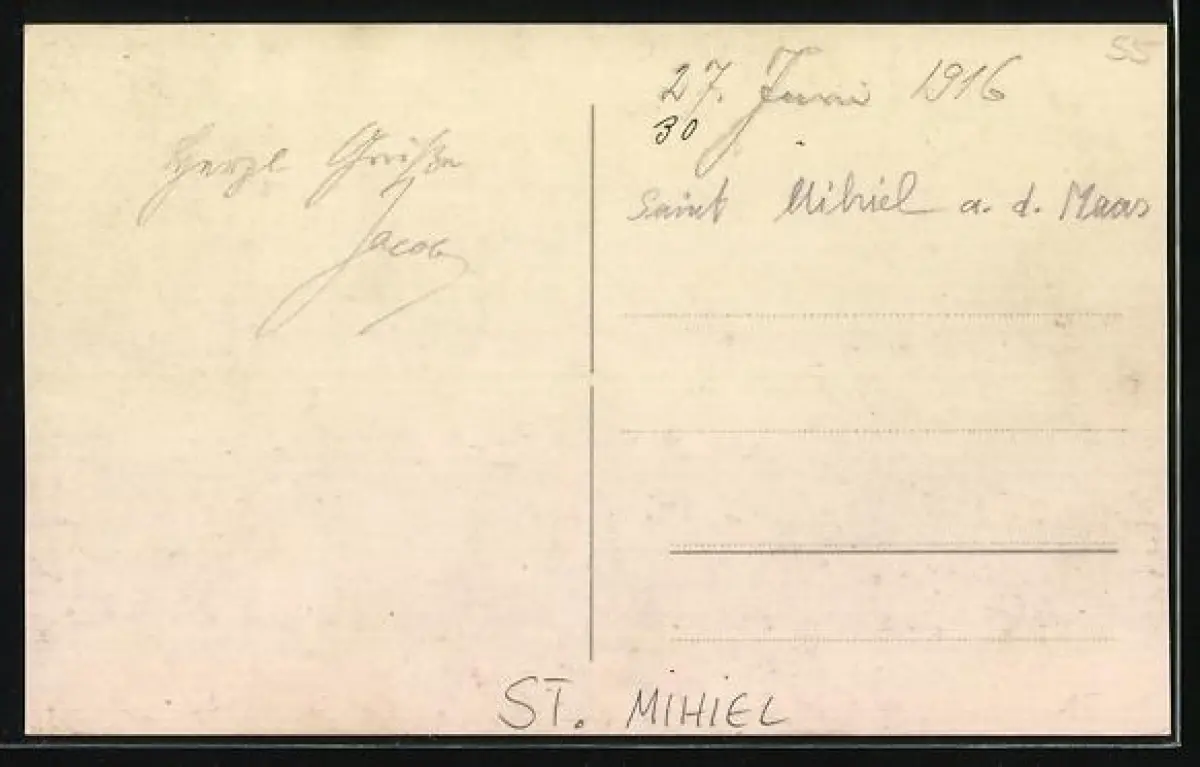 Herzl Grüße
Jacob
55
27. Juni 1916
30
Saint Mihiel a. d. Maas
ST. MIHIEL